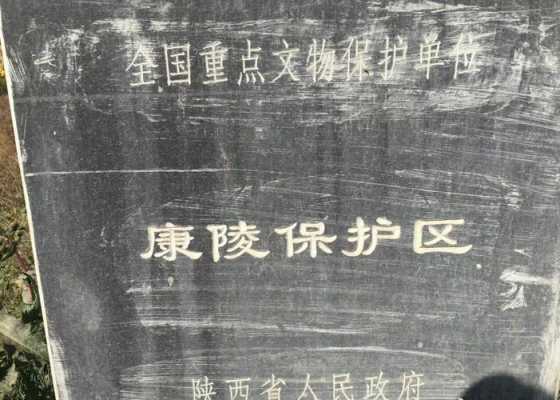 全国重点文物保护单位
康陵保护区
陕西省人民政府